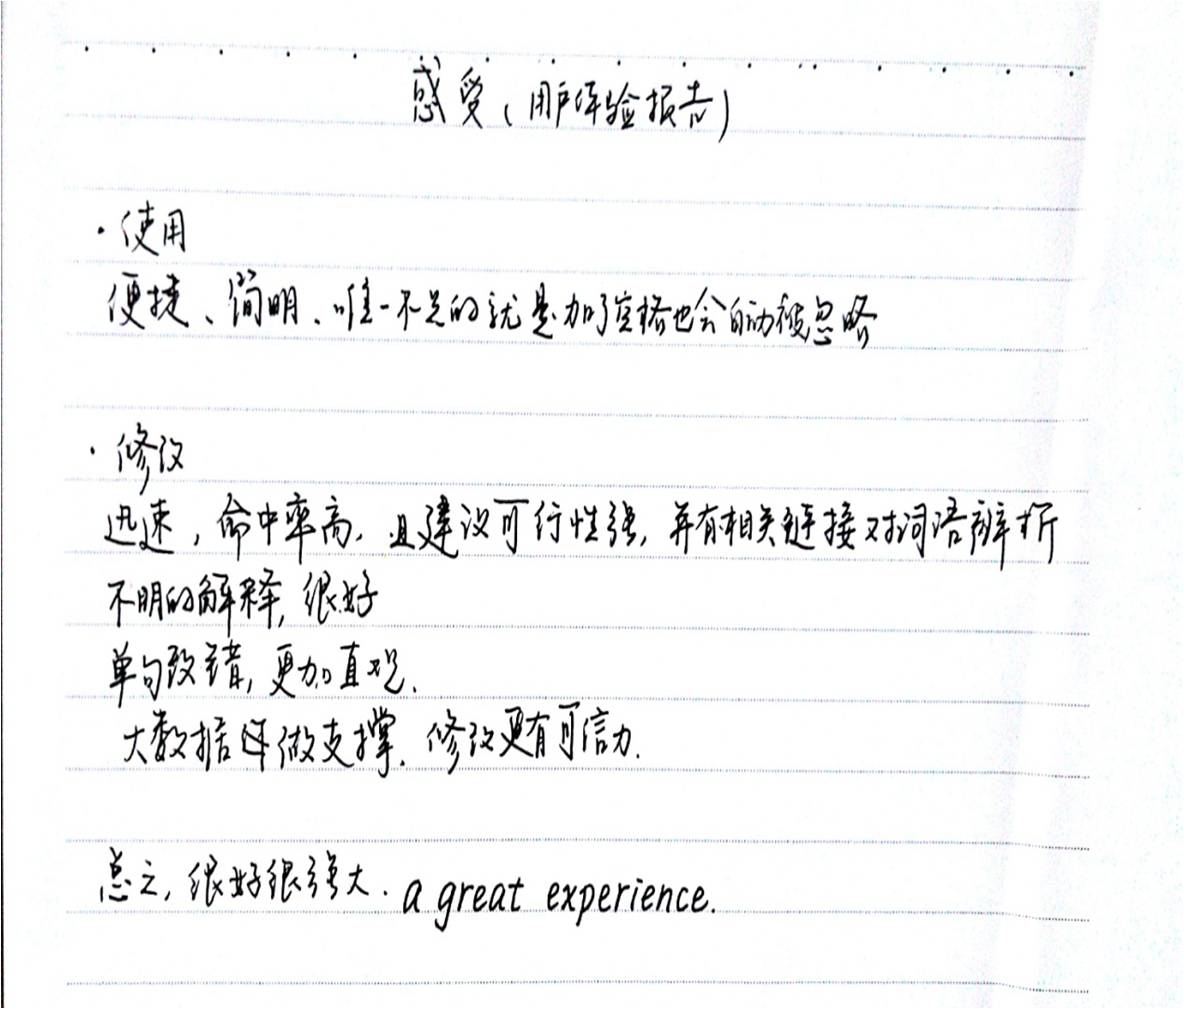 感受（用户体验报告）
·使用
便捷、简明、唯一不足的就是加了空格也会自动被忽略
·修改
迅速，命中率高，且建议可行性强，并有相关链接对词语辨析
不明的解释，很好
单句改错，更加直观.
大数据做支撑.修改更有可信力.
总之，很好很强大. a great experience.